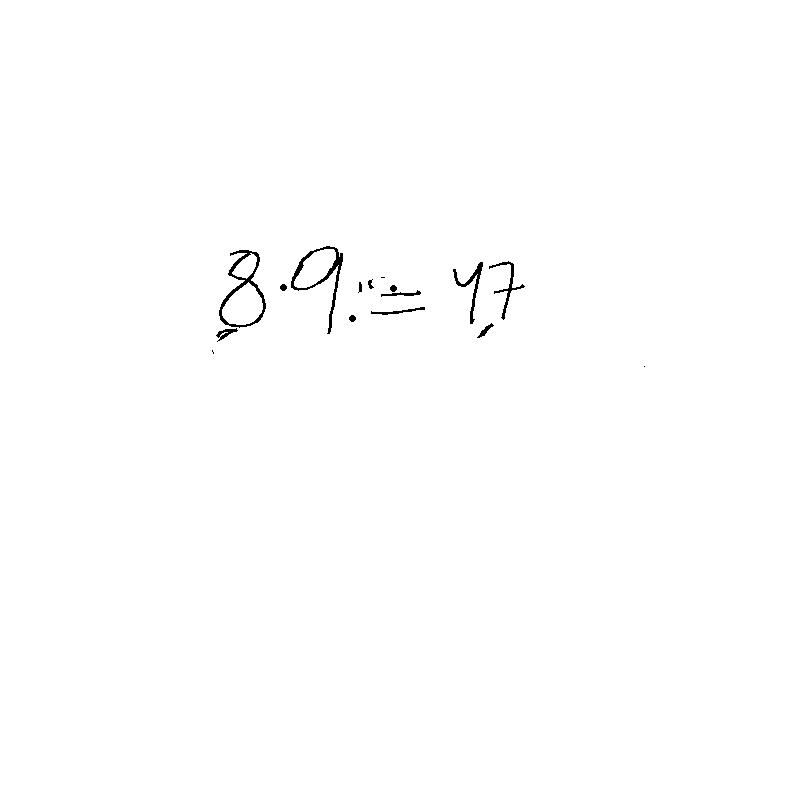 8·9 = 47